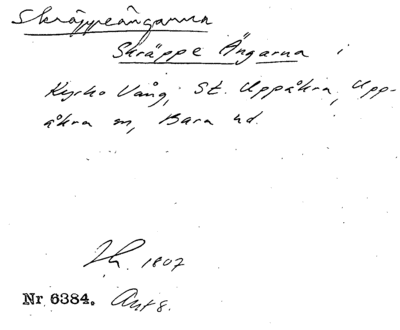 Skräppeängarna
Skräppe Ängarna i
Kyrko Vång, St. Uppåkra, Upp-
åkra sn, Bara hd.
1807
Nr 6384. Akt 8.